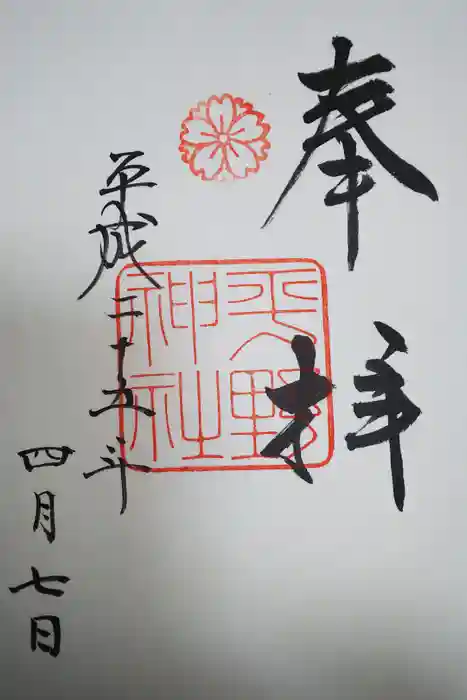 奉拝
平野
神社
平成二十五年
四月七日